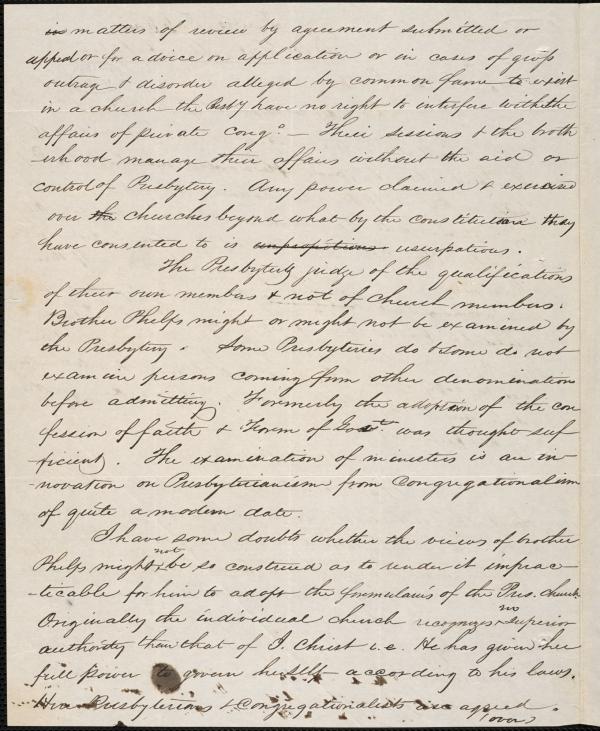 in matters of review by agreement submitted or
apped or for advice on application or in cases of gross
outrage & disorder alleged by common fame to exist
in a church the Presby have no right to interfere with the
affairs of private Cong.º — Their sessions & the broth
-erhood manage their affairs without the aid or
control of Presbytery. Any power claimed & exercised
over the churches beyond what by the constitution they
have consented to is unpropitious usurpations.
The Presbytery judge of the qualifications
of their own members & not of church members.
Brother Phelps might or might not be examined by
the Presbytery. Some Presbyteries do & some do not
examine persons coming from other denominations
before admitting. Formerly the adoption of the con
fession of faith & Form of Govt. was thought suf
ficient. The examination of ministers is an in-
-novation on Presbyterianism from Congregationalism
of quite a modern date.
I have some doubts whether the views of brother
Phelps might not be so construed as to render it imprac-
-ticable for him to adopt the formularis of the Pres. church.
Originally the individual church recognizes no superior
authority than that of J. Christ i.e. He has given her
full power to govern herself according to his laws.
Presbyterians & Congregationalists are agreed.
(over)